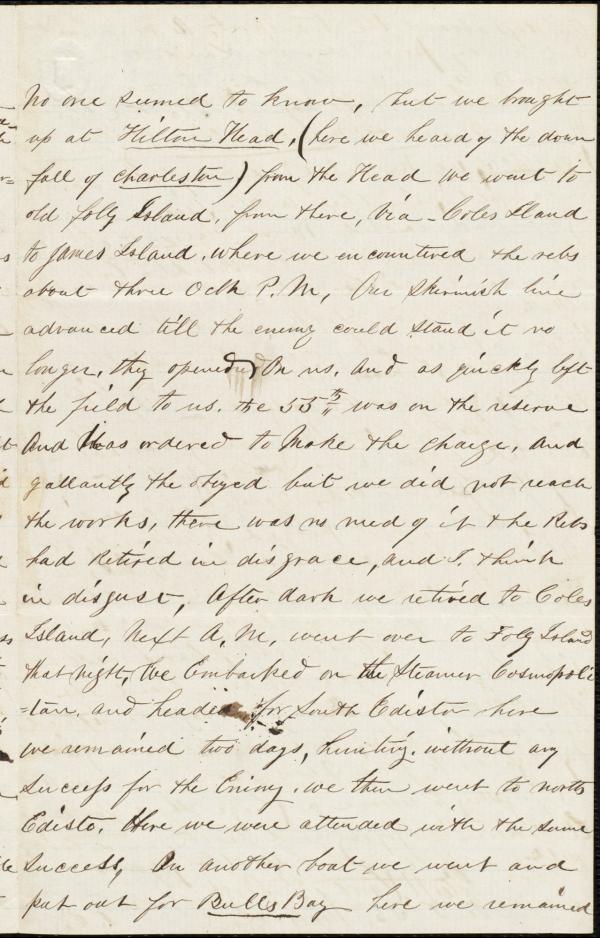 No one seemed to know, but we brought
up at Hilton Head, (here we heard of the down
fall of Charleston) from the Head we went to
old foly Island, from there, via - Coles Iland
to James Island. where we encountired the rebs
about three Oclk P.M, Our Skirmish line
advanced till the enemy could stand it no
longer. they opened On us. And as quickly left
the field to us. the 55th was on the reserve
And was ordered to Make the charge, and
gallantly the obeyed but we did not reach
the works, there was no need of it the Rebs
had Retired in disgrace, and I think
in disgust, After dark we retired to Coles
Island, Next A,M, went over to Foly Island
that night, We Embarked on the Steamer Cosmopoli
=tan. and headed for South Edisto here
we remained two days, hunting. without any
success for the Enimy. we then went to north
Edisto. Here we were attended with the same
success, On another boat we went and
put out for Bulls Bay here we remained